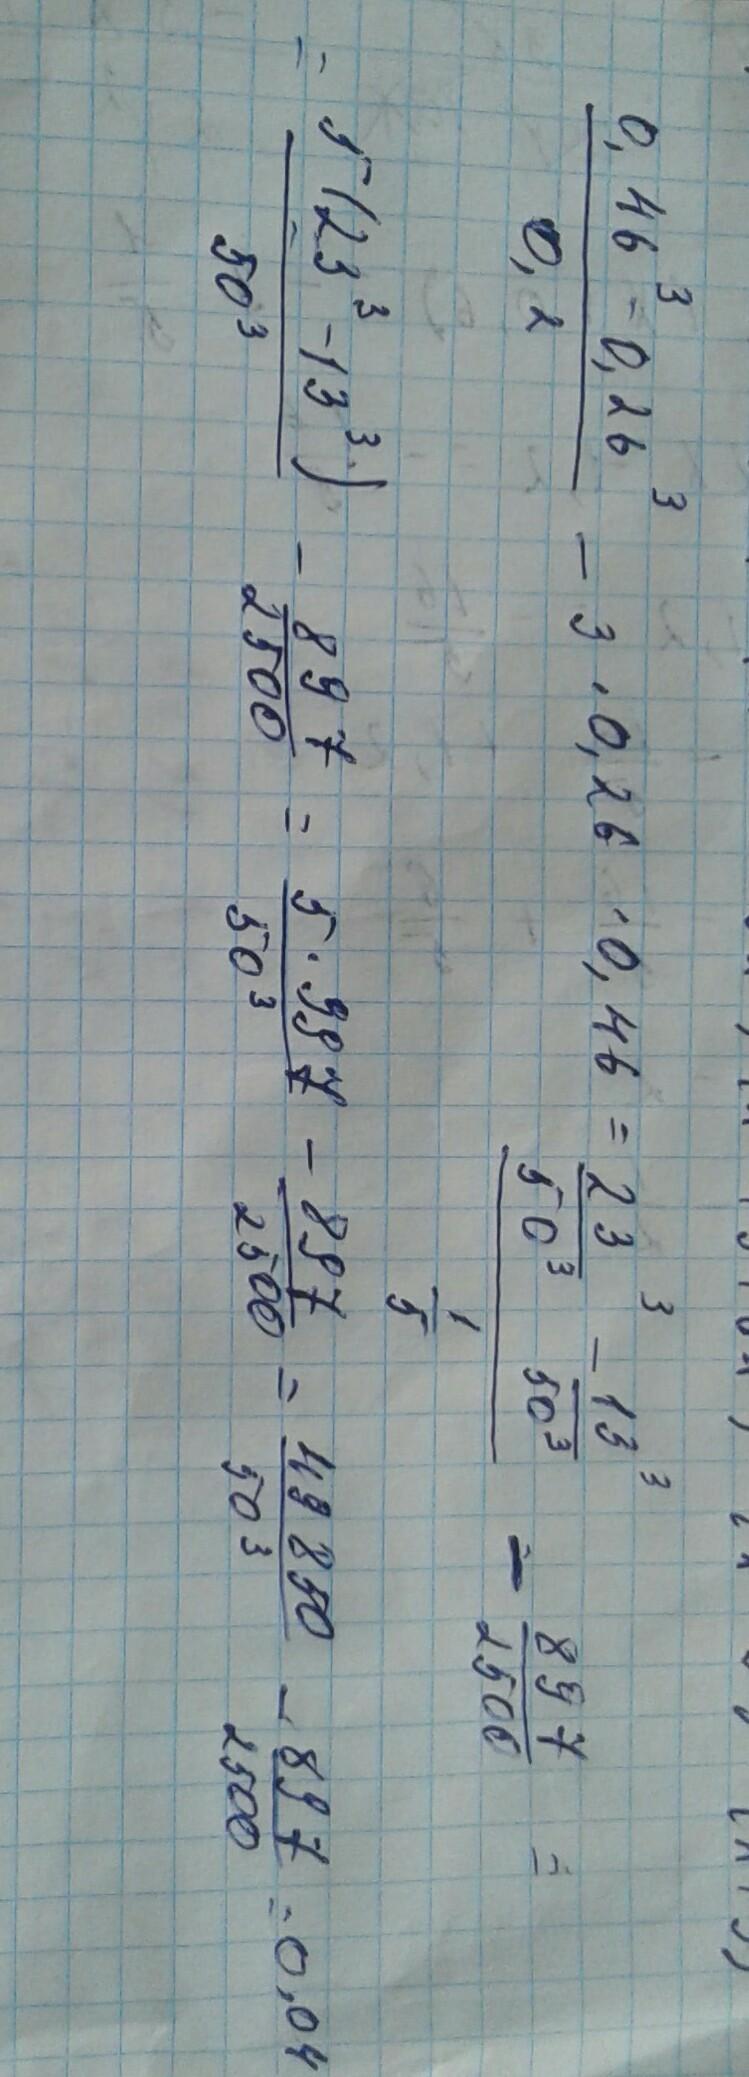 0,46³ - 0,26³ / 0,2 - 3 · 0,26 · 0,46 = (23³/50³ - 13³/50³) / (1/5) - 897/2500 =
= 5(23³ - 13³) / 50³ - 897/2500 = 5 · 997 / 50³ - 897/2500 = 49850/50³ - 897/2500 = 0,04